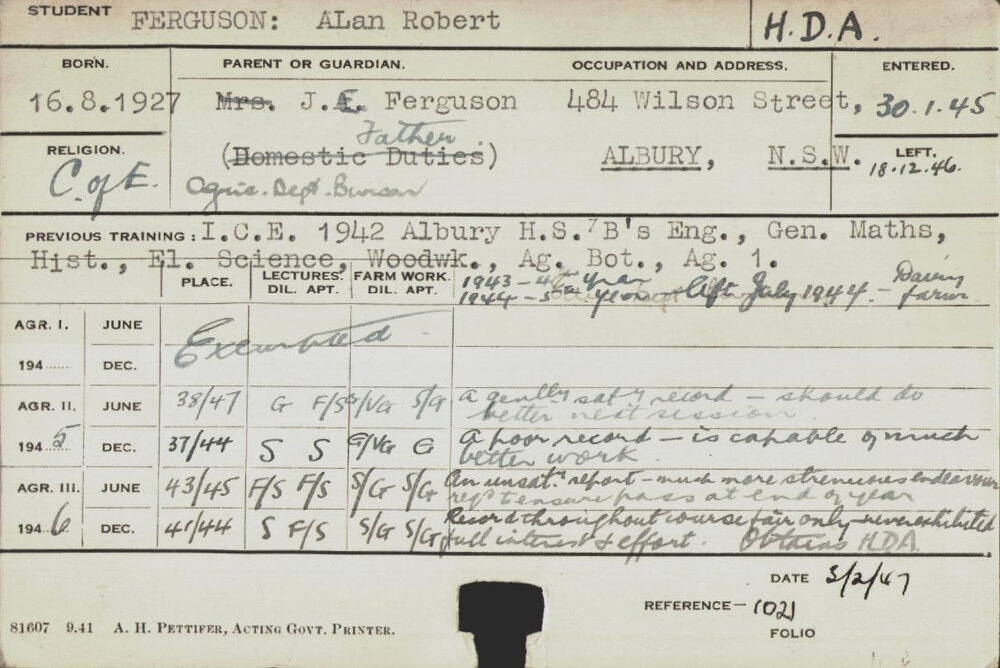 STUDENT FERGUSON: ALan Robert H.D.A.
BORN. PARENT OR GUARDIAN. OCCUPATION AND ADDRESS. ENTERED.
16.8.1927 Mrs. J.E. Ferguson 484 Wilson Street, 30.1.45
Father
RELIGION. (Domestic Duties) ALBURY, N.S.W. LEFT.
C. of E. Agric. Dept. Bursar 18.12.46.
PREVIOUS TRAINING: I.C.E. 1942 Albury H.S. 7 B's Eng., Gen. Maths,
Hist., El. Science, Woodwk., Ag. Bot., Ag. 1.
PLACE. LECTURES. FARM WORK. 1943 - 4th Year
DIL. APT. DIL. APT. 1944 - 5th Year left July 1944 - Dairy farm
AGR. I. JUNE Exempted
194...... DEC.
AGR. II. JUNE 38/47 G F/S G/VG S/G A genlly saty record - should do
better next session.
1945 DEC. 37/44 S S G/VG G A poor record - is capable of much
better work.
AGR. III. JUNE 43/45 F/S F/S S/G S/G An unsat. report - much more strenuous endeavour
reqd to ensure pass at end of year
1946 DEC. 41/44 S F/S S/G S/G Record throughout course fair only - never exhibited
full interest & effort. Obtains H.D.A.
DATE 3/2/47
REFERENCE— 1021
FOLIO
81607 9.41 A. H. PETTIFER, ACTING GOVT. PRINTER.